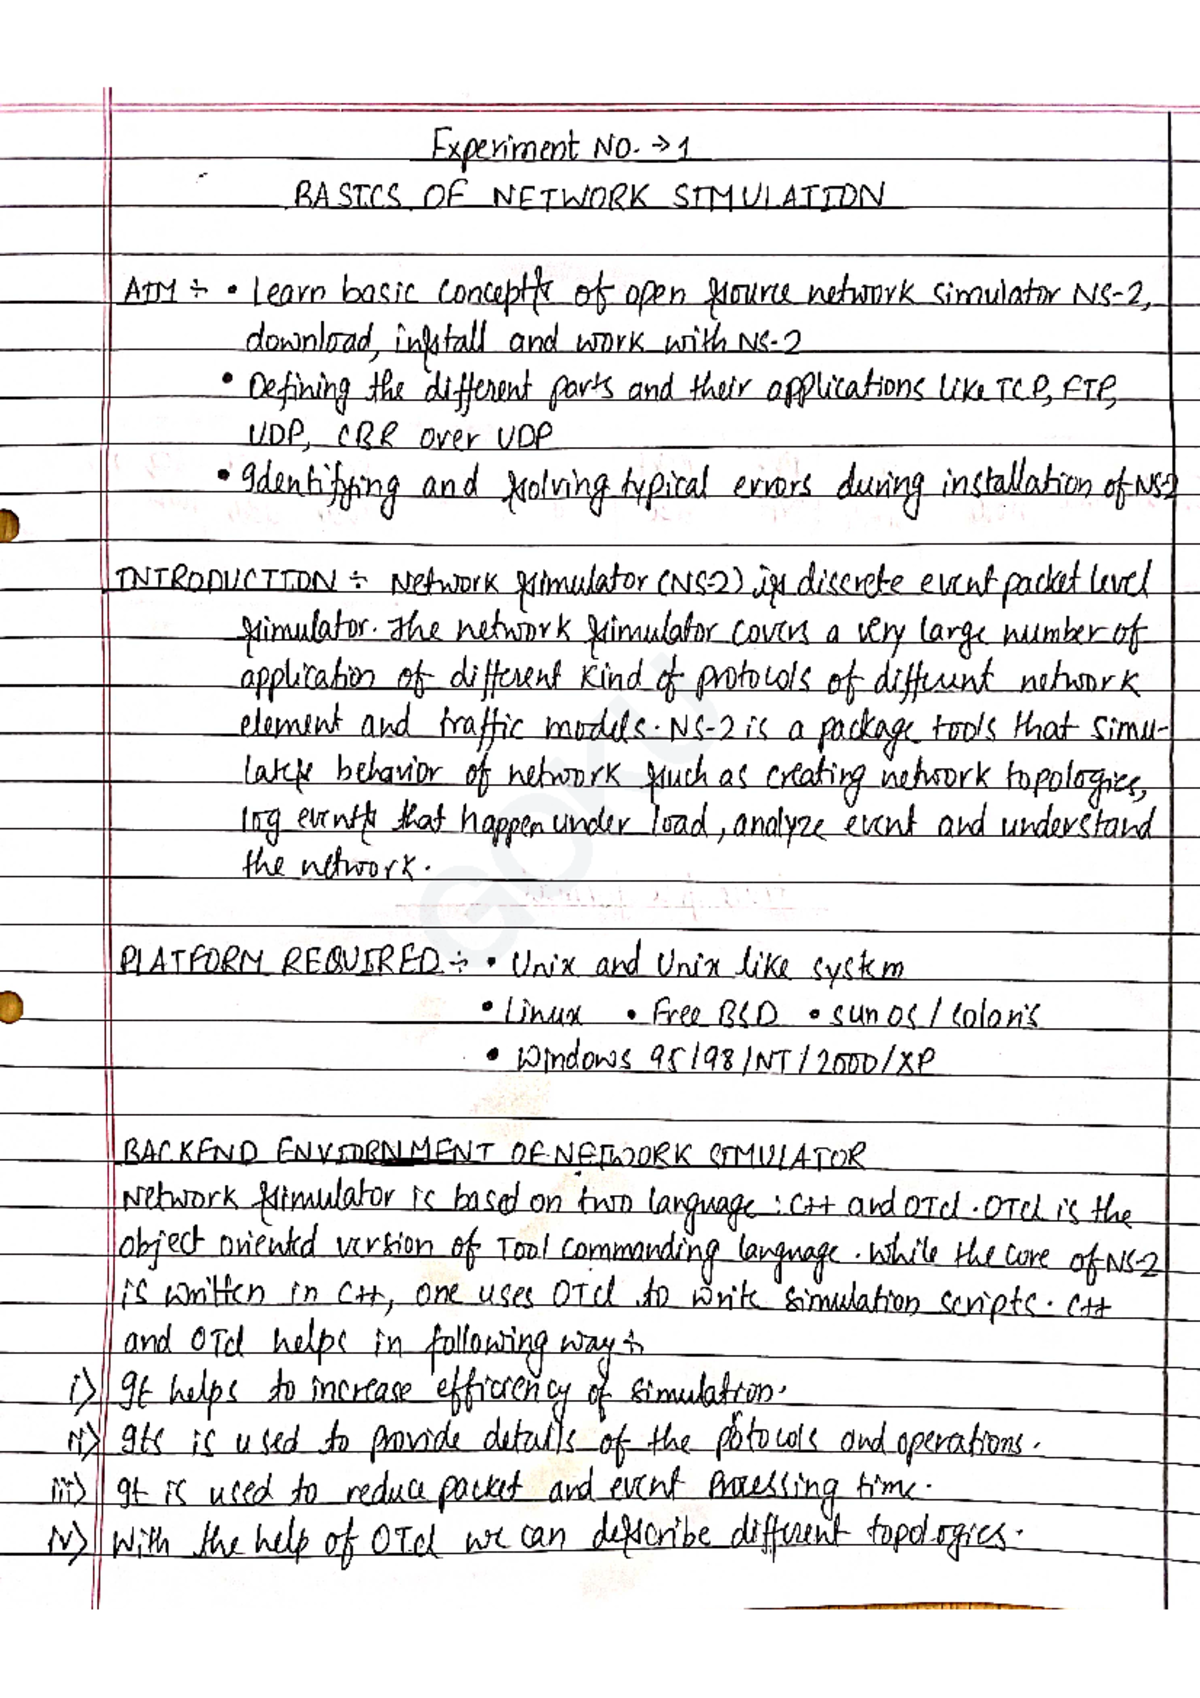 Experiment NO. → 1
BASICS OF NETWORK SIMULATION
AIM ÷ • Learn basic concepts of open source network simulator NS-2,
download, install and work with NS-2
• Defining the different parts and their applications like TCP, FTP,
UDP, CBR over UDP
• Identifying and solving typical errors during installation of NS-2
INTRODUCTION ÷ Network simulator (NS-2) is discrete event packet level
simulator. The network simulator covers a very large number of
application of different kind of protocols of different network
element and traffic models. NS-2 is a package tools that simu-
lates behavior of network such as creating network topologies,
log events that happen under load, analyze event and understand
the network.
PLATFORM REQUIRED ÷ • Unix and Unix like system
• Linux • Free BSD • sun os / solaris
• Windows 95/98/NT/2000/XP
BACKEND ENVIORNMENT OF NETWORK SIMULATOR
Network simulator is based on two language : C++ and OTcl. OTcl is the
object oriented version of Tool Commanding language. While the core of NS-2
is written in C++, one uses OTcl to write simulation scripts. C++
and OTcl helps in following way ÷
i) It helps to increase efficiency of simulation.
ii) Its is used to provide details of the potocols and operations.
iii) It is used to reduce packet and event processing time.
iv) With the help of OTcl we can describe different topologies.
GOKU